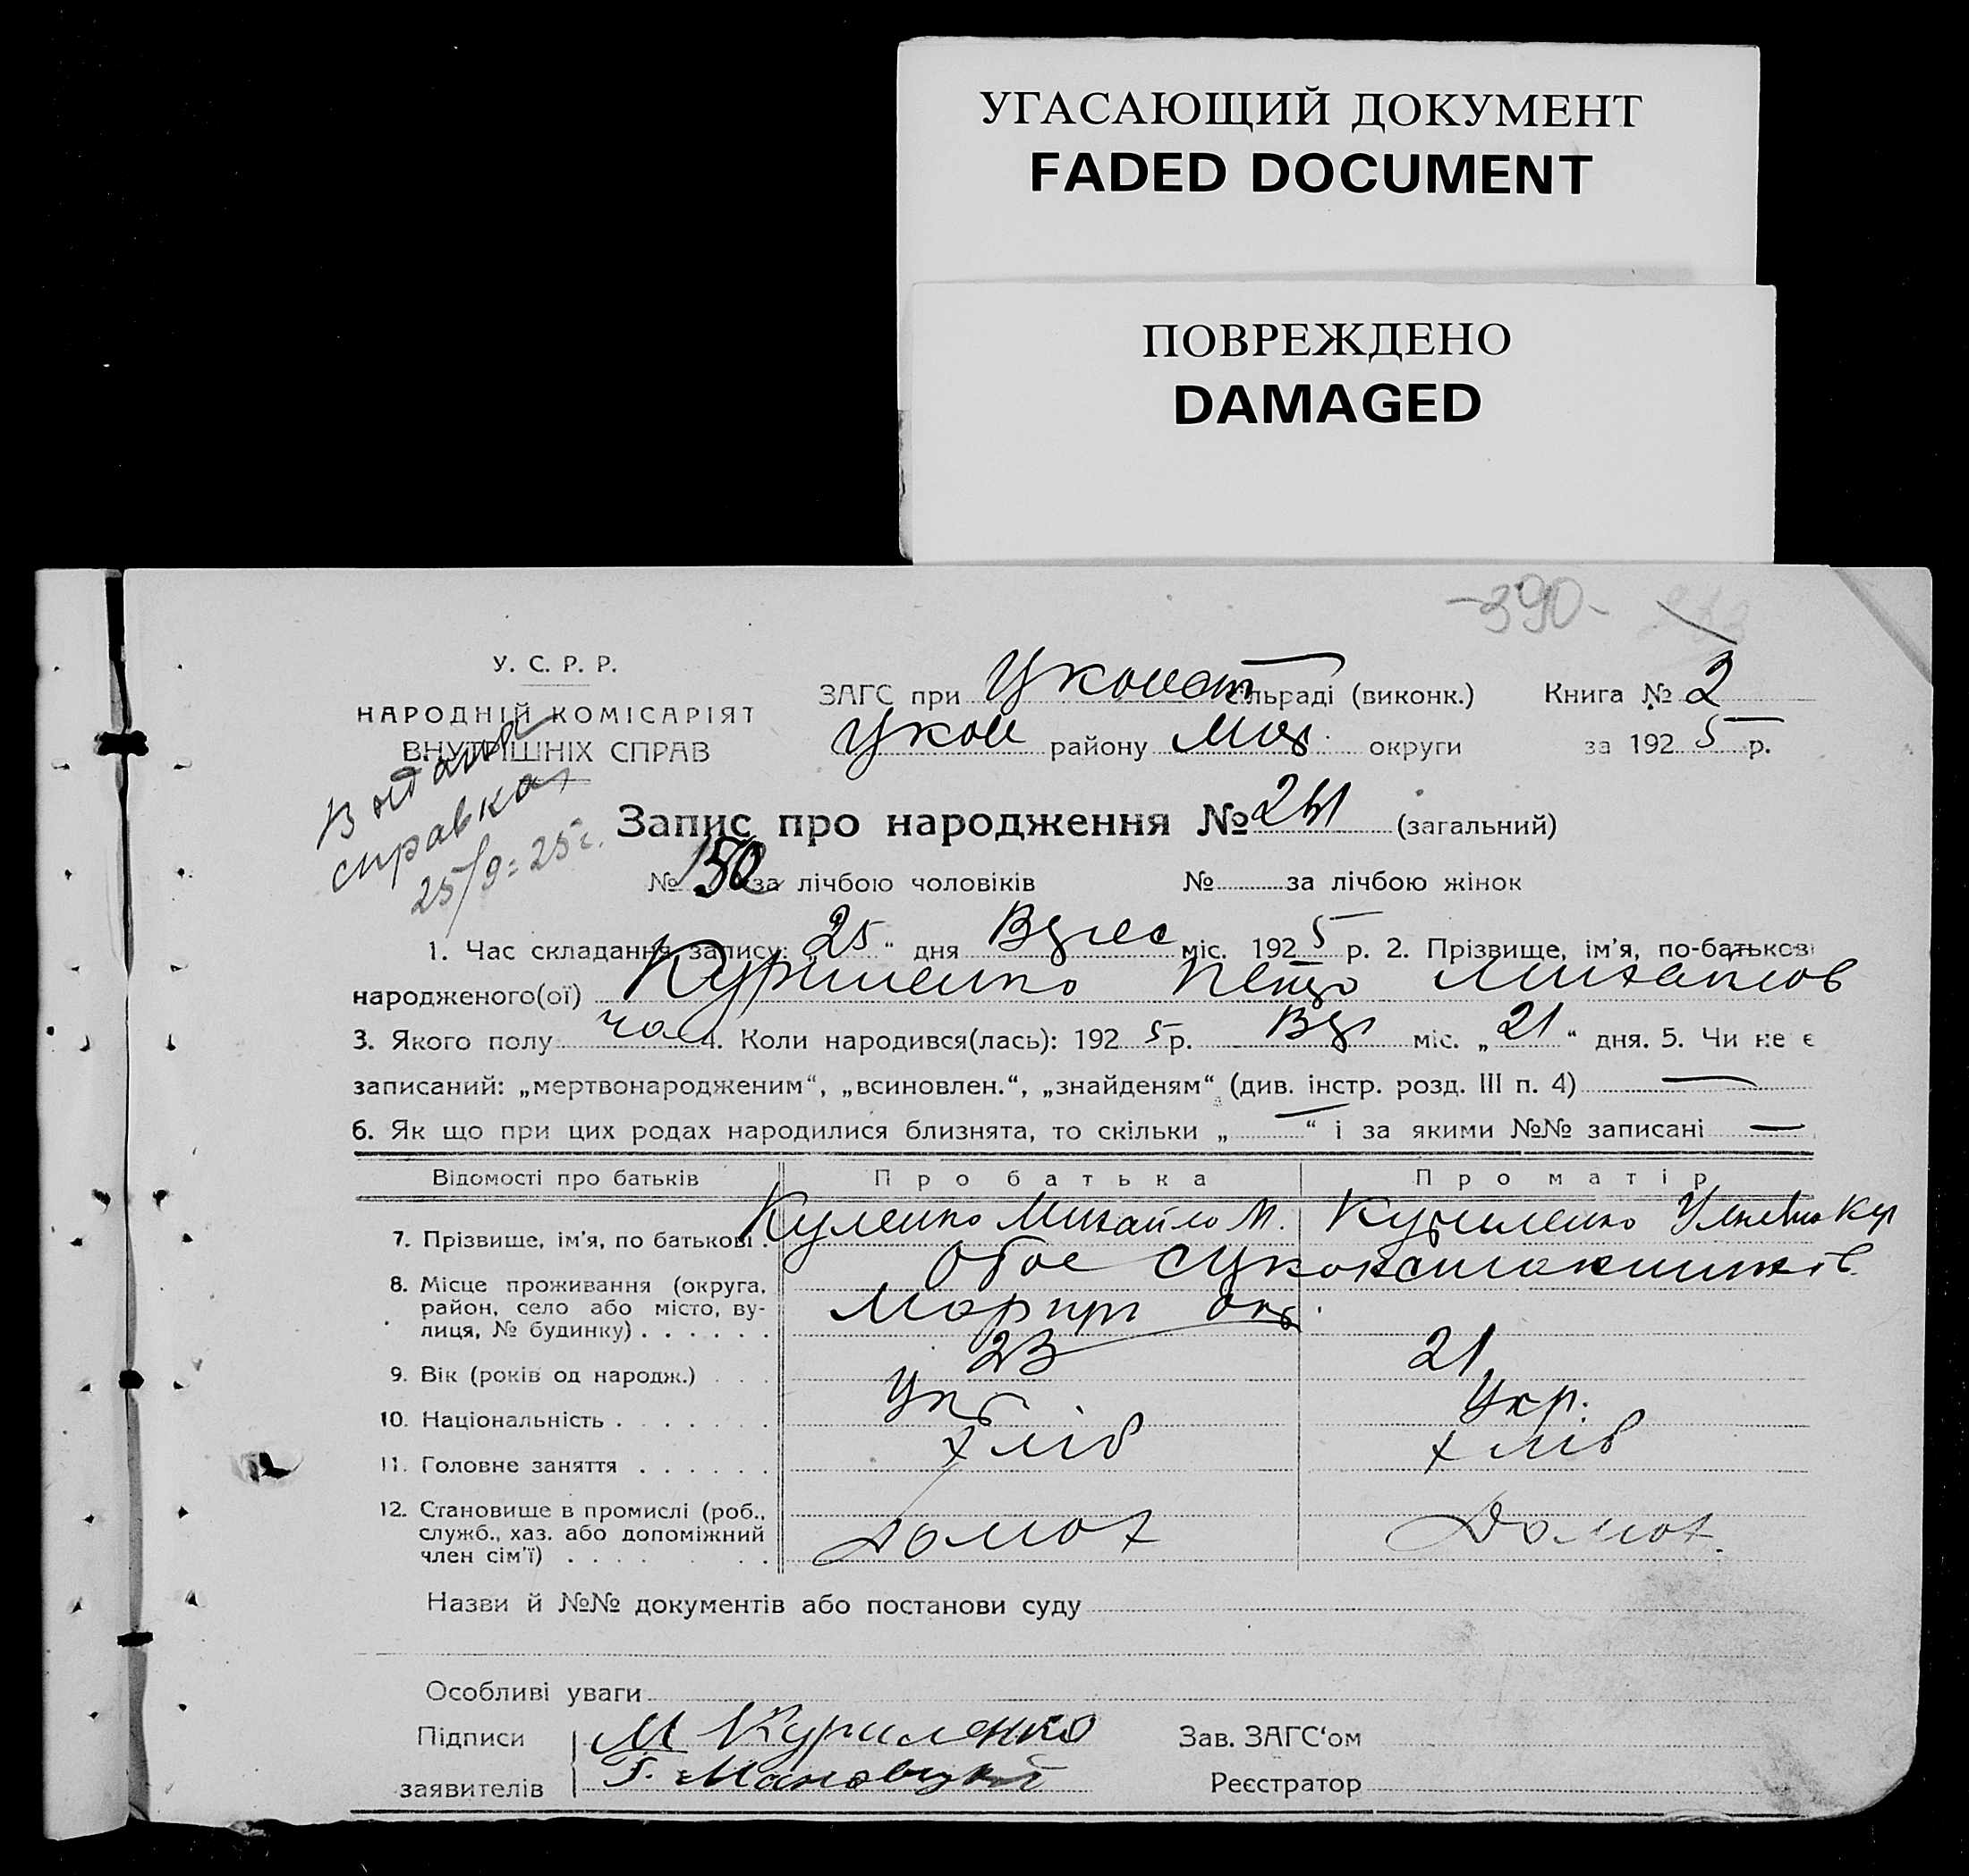 УГАСАЮЩИЙ ДОКУМЕНТ
FADED DOCUMENT
ПОВРЕЖДЕНО
DAMAGED
-390-
У. С. Р. Р.
НАРОДНІЙ КОМІСАРІЯТ
ВНУТРІШНІХ СПРАВ
ЗАГС при сільраді (виконк.) Книга № 2
району округи за 1925 р.
Видана
справка
25/9-25г.
Запис про народження № 241 (загальний)
№ 150 за лічбою чоловіків № за лічбою жінок
1. Час складання запису: „25“ дня міс. 1925 р. 2. Прізвище, ім'я, по-батькові
народженого(ої) Куриленко Петро Михайлов
3. Якого полу чол 4. Коли народився(лась): 1925 р. міс. „21“ дня. 5. Чи не є
записаний: „мертвонародженим“, „всиновлен.“, „знайденям“ (див. інстр. розд. III п. 4) —
6. Як що при цих родах народилися близнята, то скільки „—“ і за якими №№ записані —
Відомості про батьків Про батька Про матір
7. Прізвище, ім'я, по батькові . Куленко Михайло М. Куриленко
8. Місце проживання (округа, Обоє
район, село або місто, ву-
лиця, № будинку) . . . . . .
9. Вік (років од народж.) . . . 23 21
10. Національність . . . . . . Укр. Укр.
11. Головне заняття . . . . . . хліб хліб
12. Становище в промислі (роб.,
служб., хаз. або допоміжний
член сім'ї) . . . . . . . домох Домох.
Назви й №№ документів або постанови суду
Особливі уваги
Підписи М Куриленко Зав. ЗАГС'ом
заявителів Реєстратор